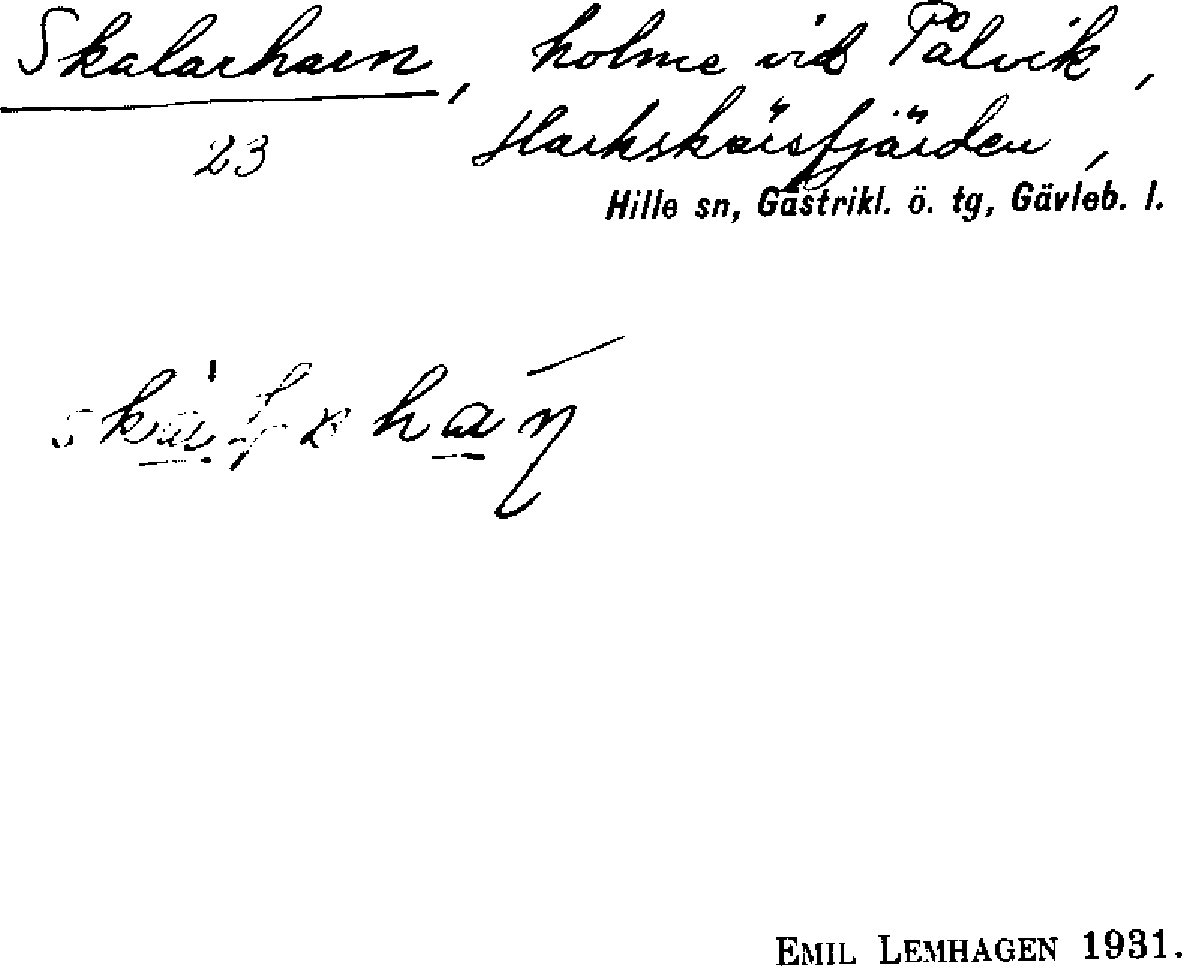 Skalarharn, holme vid Pålvik,
23 Harkskärsfjärden,
Hille sn, Gästrikl. ö. tg, Gävleb. l.
EMIL LEMHAGEN 1931.